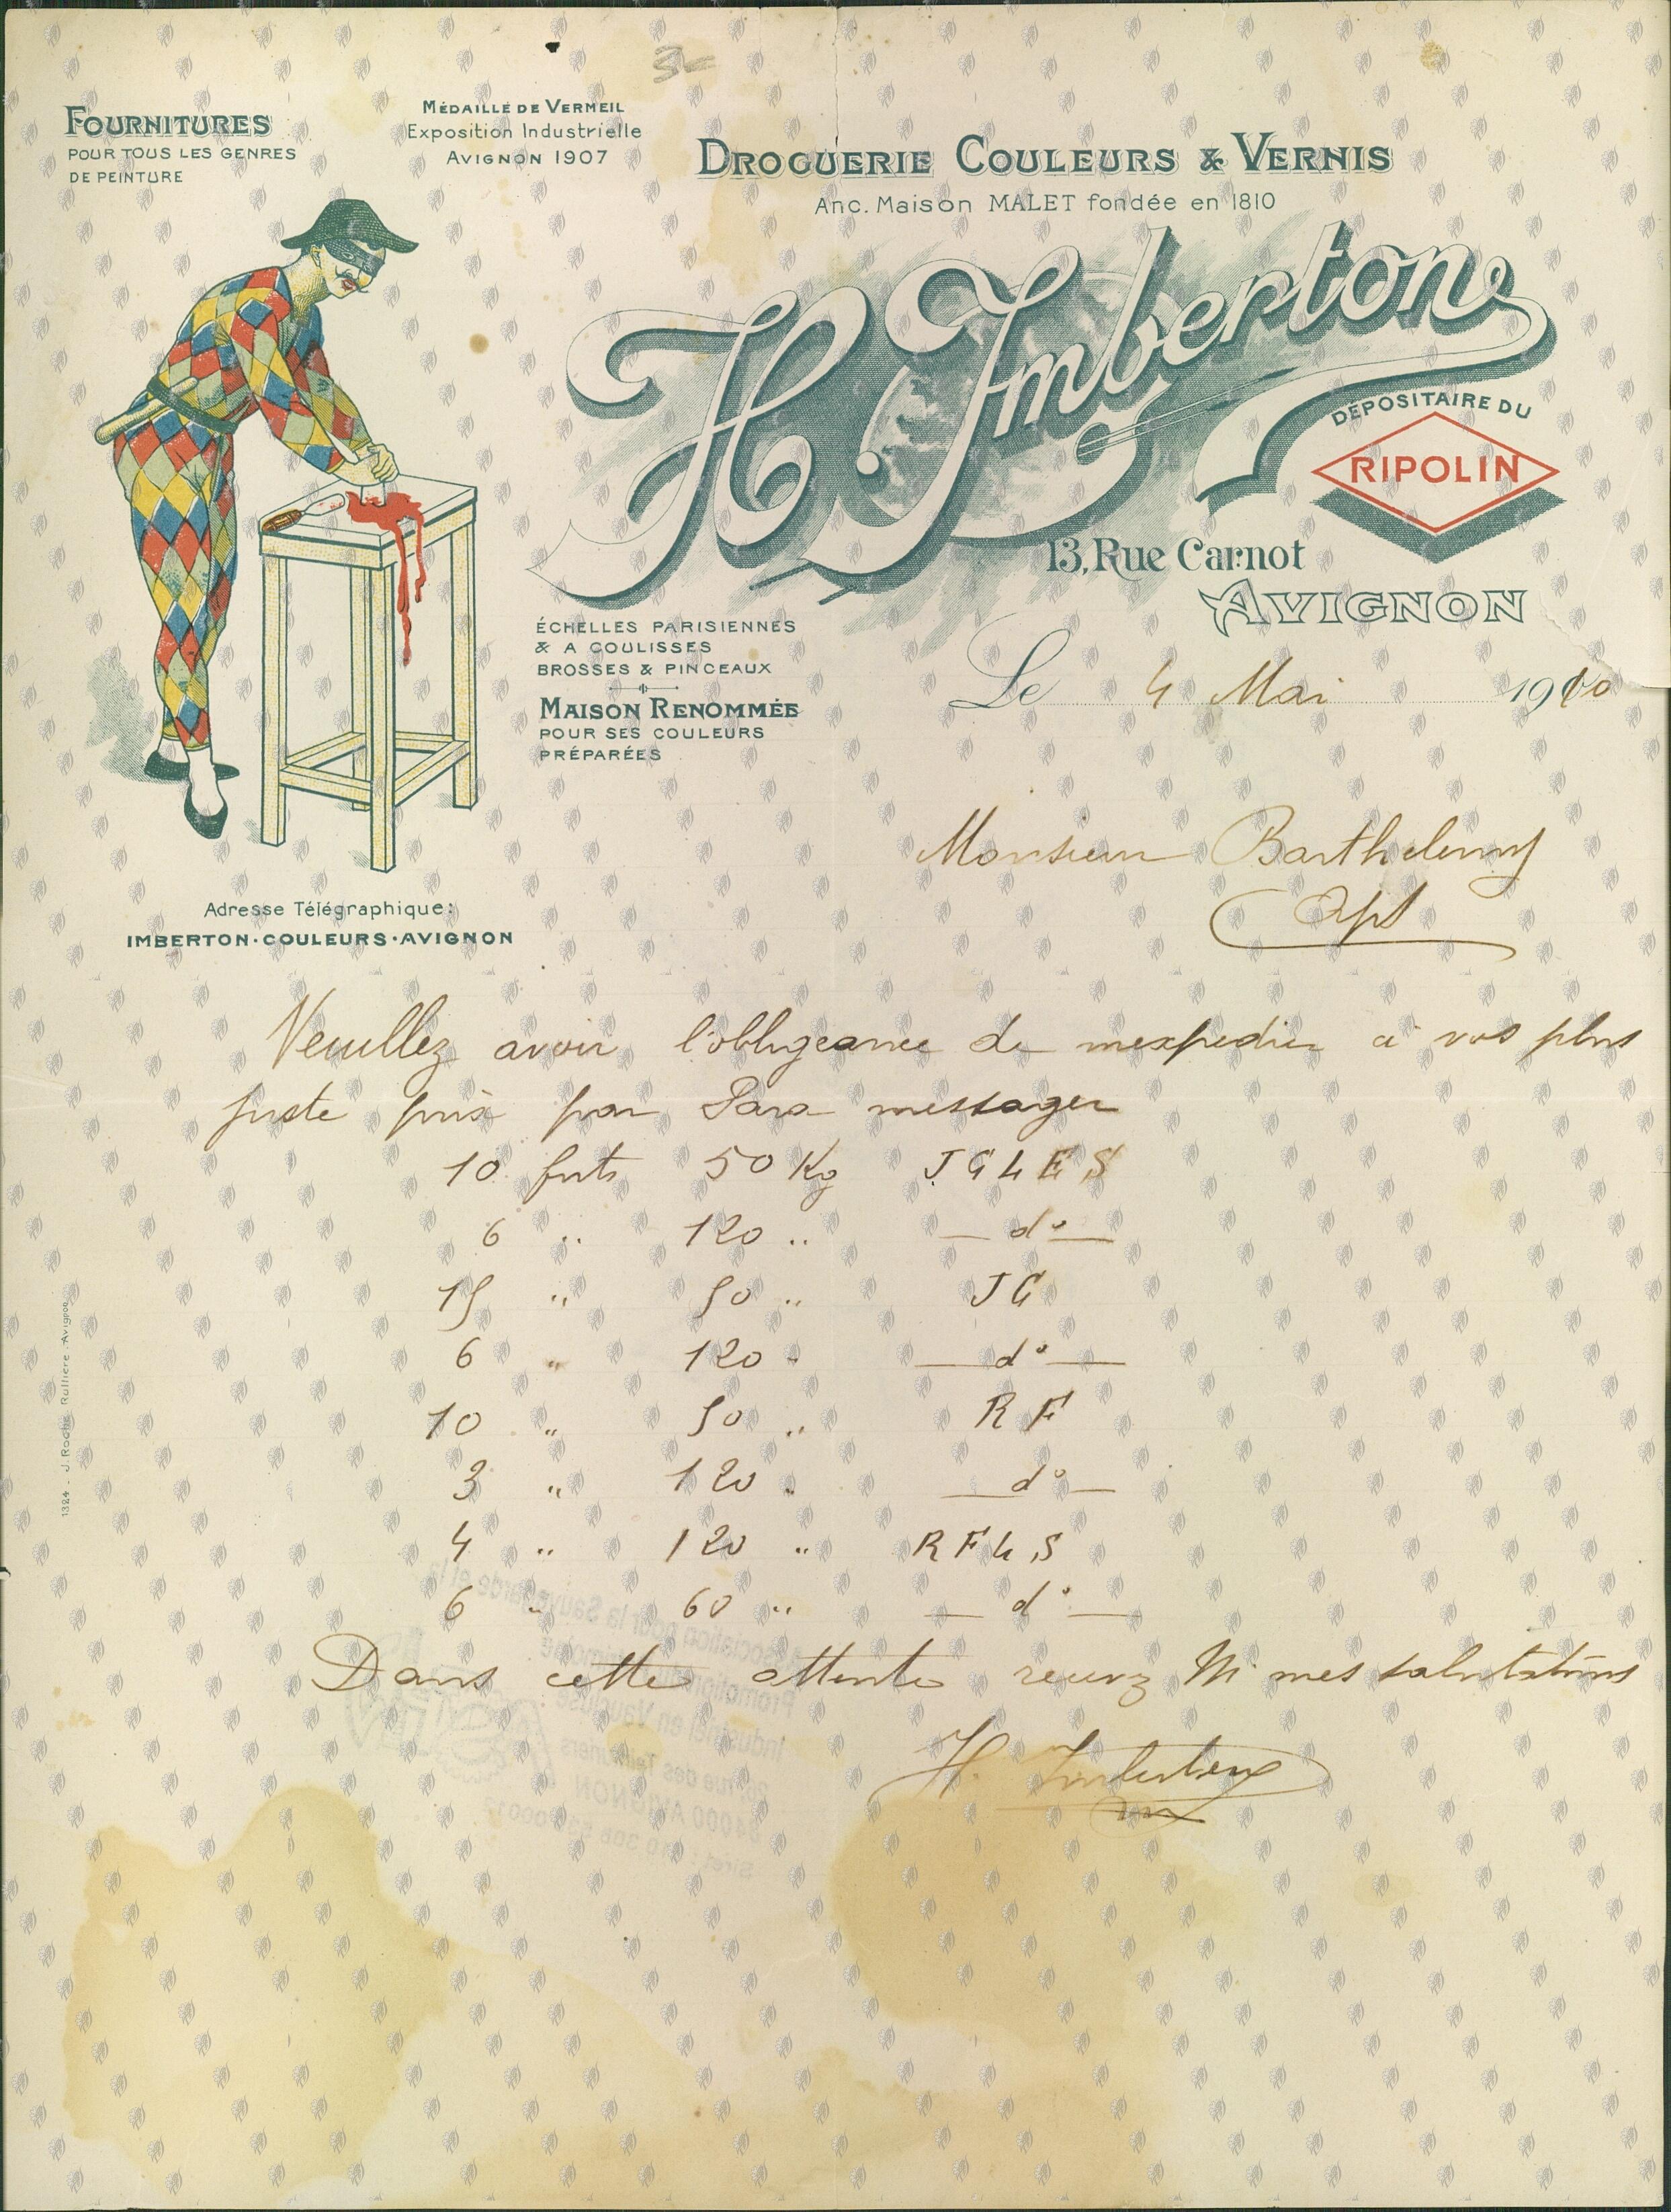 FOURNITURES
POUR TOUS LES GENRES
DE PEINTURE
MÉDAILLE DE VERMEIL
Exposition Industrielle
AVIGNON 1907
DROGUERIE COULEURS & VERNIS
Anc. Maison MALET fondée en 1810
H. Imberton
DÉPOSITAIRE DU
RIPOLIN
13, Rue Carnot
AVIGNON
ÉCHELLES PARISIENNES
& A COULISSES
BROSSES & PINCEAUX
MAISON RENOMMÉE
POUR SES COULEURS
PRÉPARÉES
Le 4 Mai 1910
Monsieur Barthelemy
Apt
Adresse Télégraphique:
IMBERTON·COULEURS·AVIGNON
Veuillez avoir l'obligeance de mexpedier a vos plus
juste prix par Para messager
10 futs 50 Kg J G L E S
6 " 120 " — d° —
15 " 50 " J G
6 " 120 " — d° —
10 " 50 " R F
3 " 120 " — d° —
4 " 120 " R F L S
6 " 60 " — d° —
Dans cette attente recevez M mes salutations
H. Imberton
1324 - J. Roche Rullière Avignon
Association pour la Sauvegarde et la
Promotion
Industriel en Vaucluse
rue des Teinturiers
84000 AVIGNON